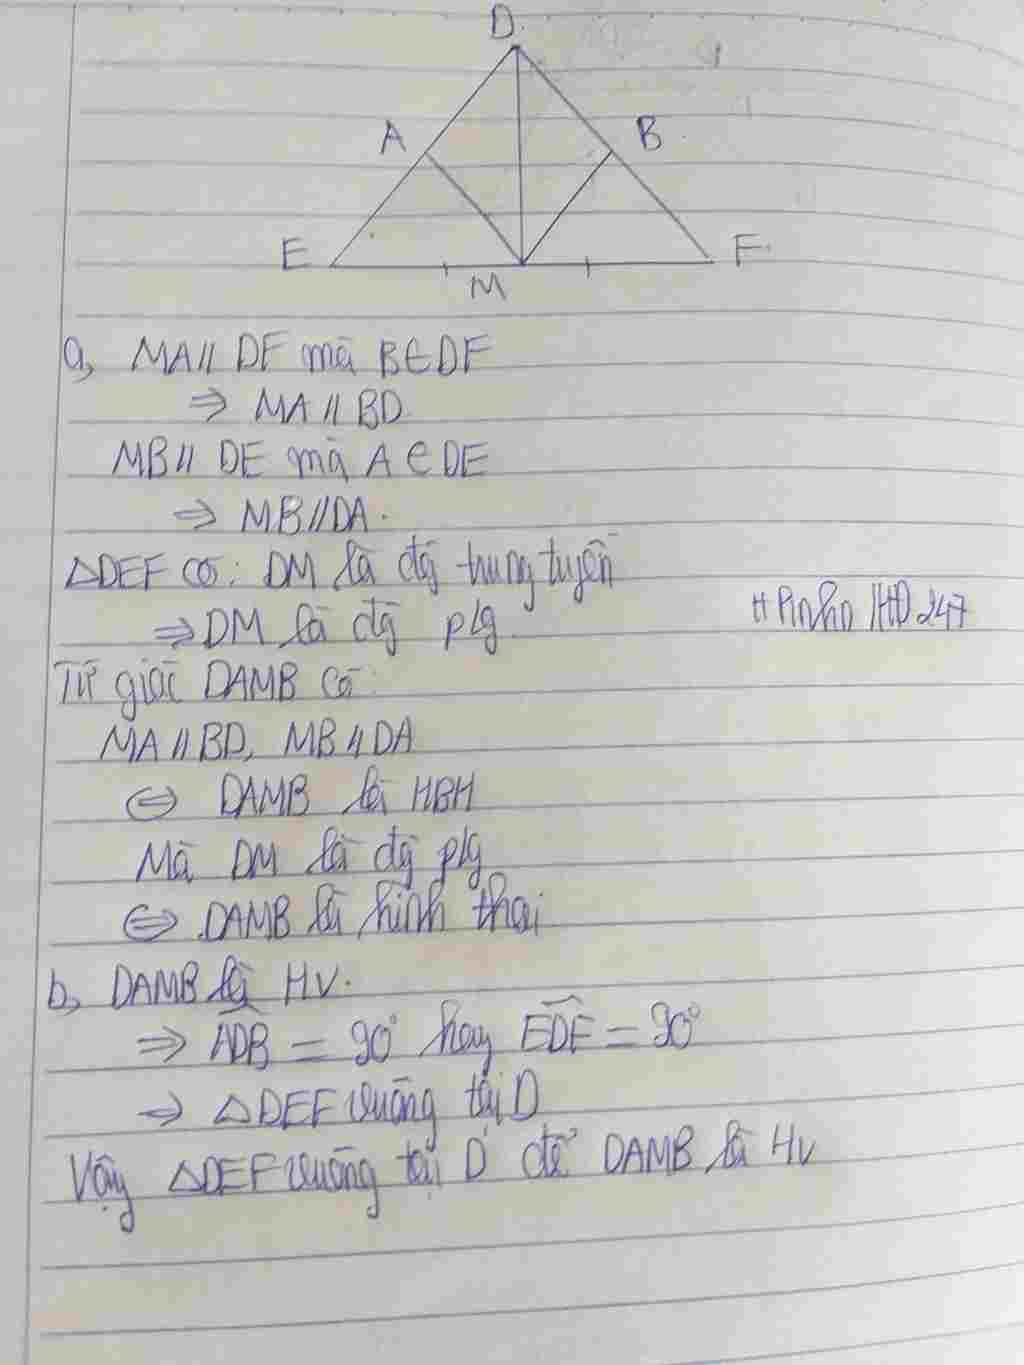 D
A
B
E
M
F
a, MA // DF mà B ∈ DF
⇒ MA // BD
MB // DE mà A ∈ DE
⇒ MB // DA.
△DEF có: DM là đg trung tuyến
⇒ DM là đg p/g
Tứ giác DAMB có
MA // BD, MB // DA
⇔ DAMB là HBH
Mà DM là đg p/g
⇔ DAMB là hình thoi
b, DAMB là HV.
⇒ ADB = 90° hay EDF = 90°
⇒ △DEF vuông tại D
Vậy △DEF vuông tại D để DAMB là HV